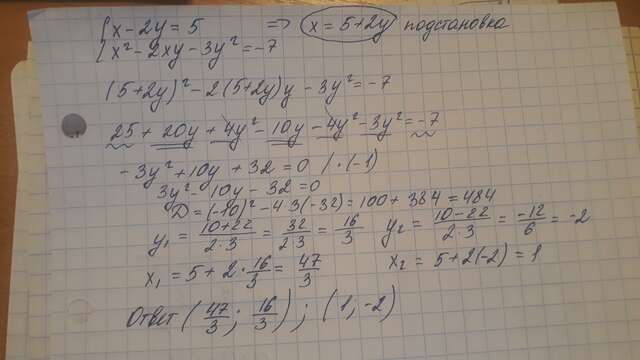 {x - 2y = 5 => x = 5+2y подстановка
{x² - 2xy - 3y² = -7
(5+2y)² - 2(5+2y)y - 3y² = -7
25 + 20y + 4y² - 10y - 4y² - 3y² = -7
-3y² + 10y + 32 = 0 / · (-1)
3y² - 10y - 32 = 0
D = (-10)² - 4·3(-32) = 100 + 384 = 484
y₁ = (10+22)/(2·3) = 32/(2·3) = 16/3 y₂ = (10-22)/(2·3) = -12/6 = -2
x₁ = 5 + 2 · 16/3 = 47/3 x₂ = 5 + 2(-2) = 1
Ответ (47/3; 16/3); (1, -2)